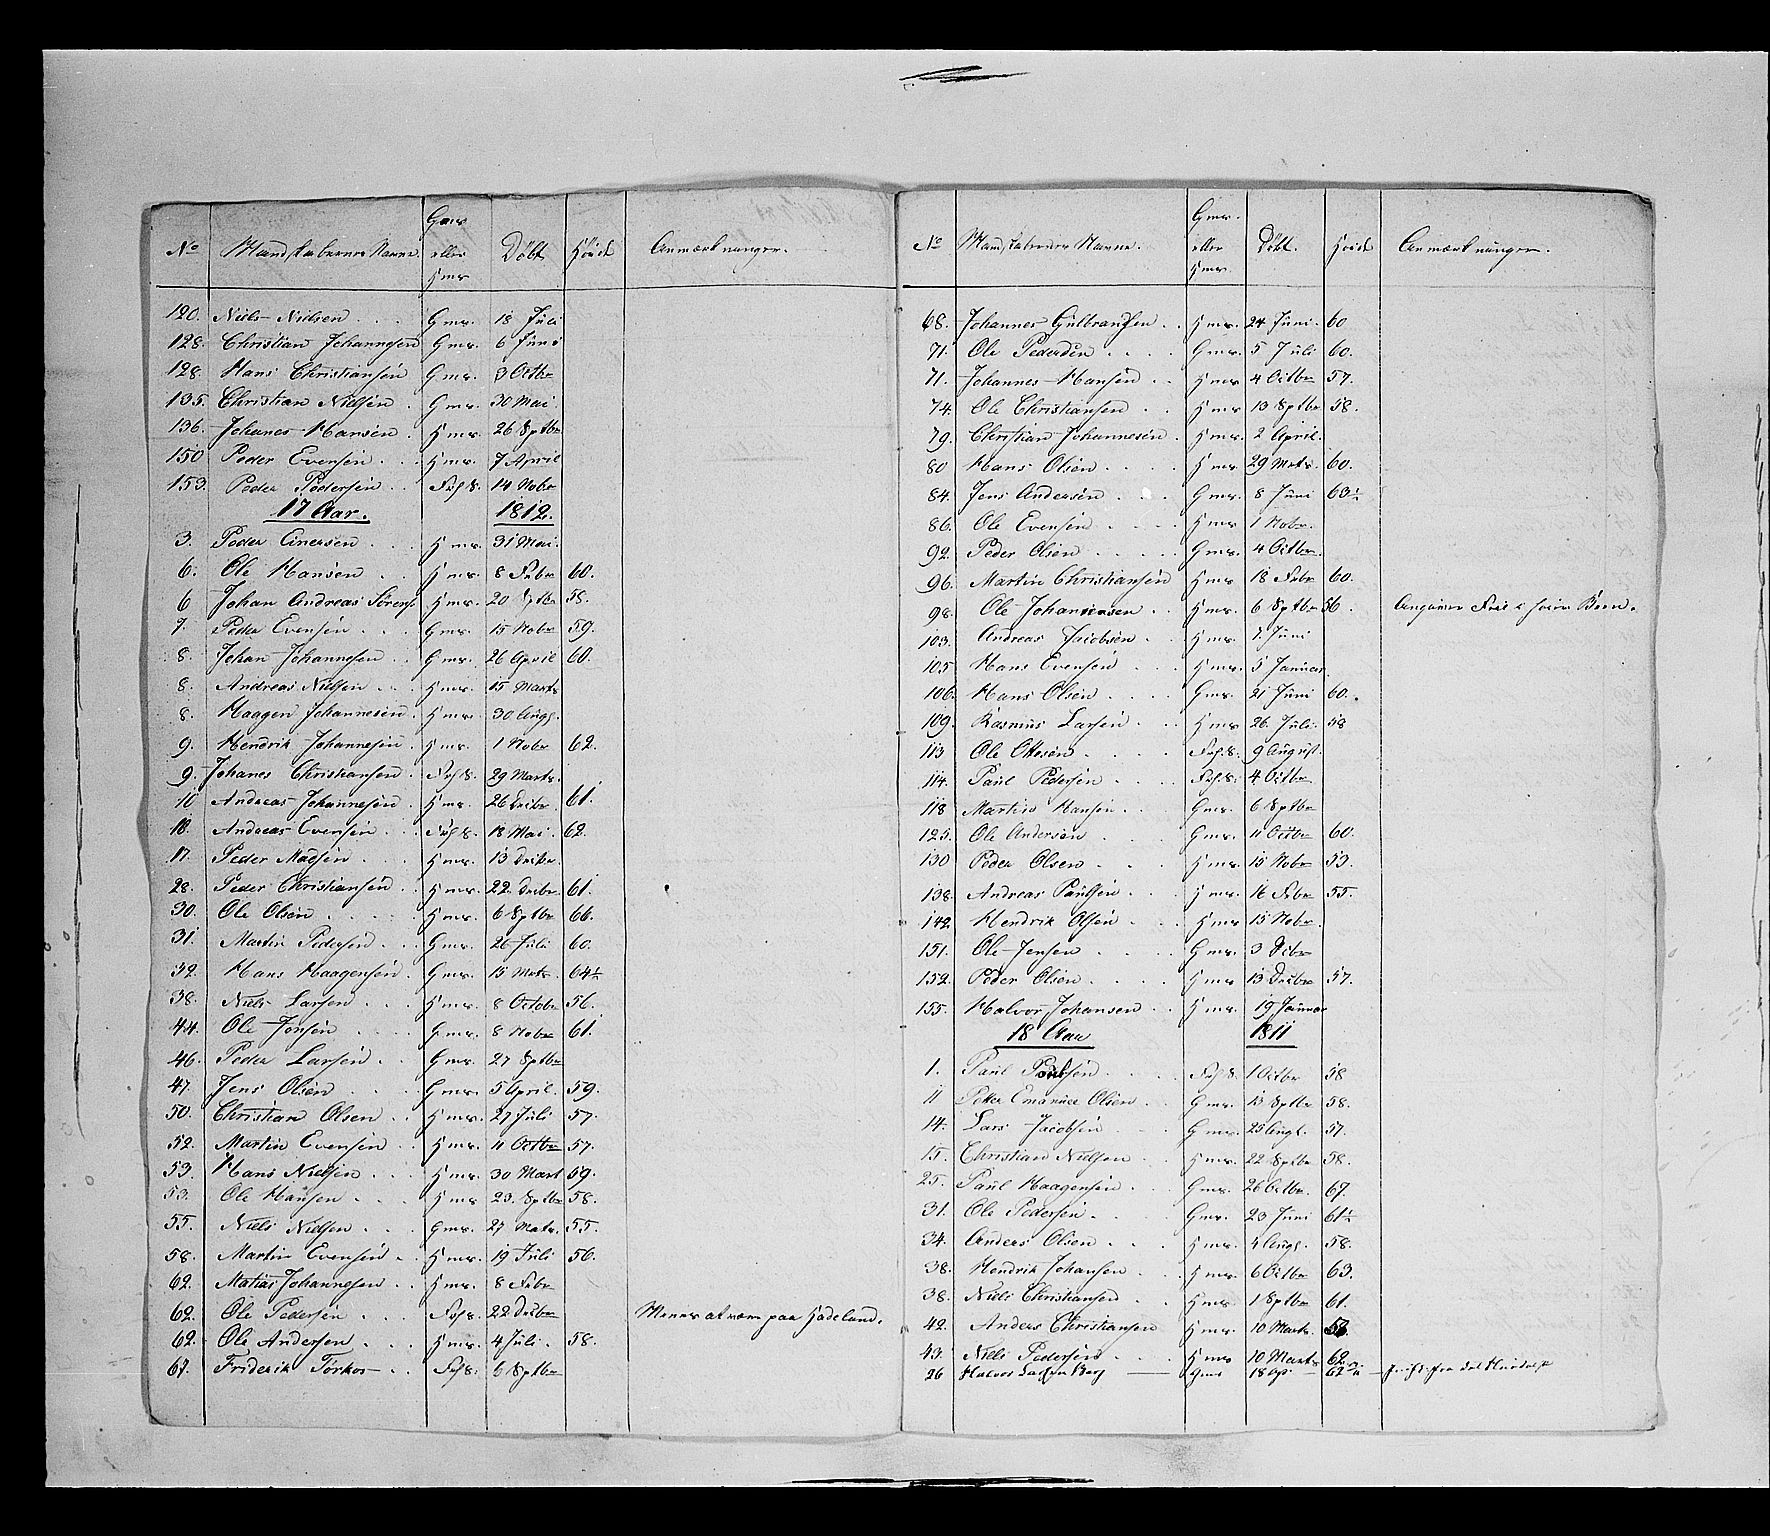 No Mandskabernes Navne. Gmr eller Hmr Døbt Høide Anmærkninger.
120. Niels Nielsen Gmr. 18 Juli
128. Christian Johannesen Gmr. 6 Juni
128. Hans Christiansen Gmr. 3 Octbr
135. Christian Nielsen Gmr. 30 Mai.
136. Johanes Hansen Hmr. 26 Sptbr
150 Peder Evensen Hmr. 7 April
153. Peder Pedersen 14 Nobr
17 Aar. 1812.
3. Peder Einersen Hmr. 31 Mai.
6. Ole Hansen Hmr. 8 Febr 60.
6 Johan Andreas Sörens Hmr. 20 Sptbr 58.
7. Peder Evensen Gmr. 15 Nobr 59.
8. Johan Johannesen Gmr. 26 April 60.
8. Andreas Nielsen Hmr. 15 Marts
8. Haagen Johannesen Hmr. 30 Augs.
9. Hendrik Johannesen Hmr. 1 Nobr 62.
9. Johanes Christiansen 29 Marts.
10 Andreas Johannesen Hmr. 26 Decbr 61.
18. Andreas Evensen 18 Mai. 62.
17. Peder Madsen Hmr. 13 Decbr.
28. Peder Christiansen Hmr. 22 Decbr 61.
30. Ole Olsen Hmr. 6 Sptbr 66.
31. Martin Pedersen Gmr. 26 Juli 60.
32. Hans Haagensen Gmr. 15 Mats. 64½
38. Niels Larsen Hmr. 8 Octobr 56.
44. Ole Jonsen Gmr. 8 Nobr 61.
46. Peder Larsen Gmr. 27 Sptbr
47. Jens Olsen Gmr. 5 April 59.
50. Christian Olsen Hmr. 27 Juli 57.
52. Martin Evensen Hmr. 11 Octbr 57.
53. Hans Nielsen Hmr. 30 Mart 59.
53. Ole Hansen Hmr 23. Sptbr 58.
55. Niels Nielsen Gmr. 27 Mats. 55.
58. Martin Evensen Hmr. 19 Juli 56.
62. Matias Johannesen Hmr. 8 Febr
62. Ole Pedersen 22 Decbr Menes at være paa Hadeland.
62. Ole Andersen Hmr. 4 Juli. 58.
67. Friderik Törkos 6 Sptbr
No Mandskabernes Navne. Gmr. eller Hmr. Døbt. Høide Anmærkninger.
68. Johannes Gulbransen Hmr. 24 Juni. 60
71. Ole Pedersen Gmr. 5 Juli 60.
71. Johannes Hansen Hmr 4 Octbr 57.
74. Ole Christiansen Hmr 13 Sptbr 58.
79. Christian Johannesen Hmr. 2 April.
80 Hans Olsen Hmr 29 Mats. 60.
84. Jens Andersen Gmr. 8 Juni 63½
86. Ole Evensen Hmr 1 Nobr.
92. Peder Olsen Gmr. 4 Octbr.
96. Martin Christiansen Hmr 18 Febr. 60.
98. Ole Johannesen Hmr. 6 Sptbr 56. Angiver Feil i sine Been.
103. Andreas Jacobsen Hmr. 7. Juni
105 Hans Evensen Hmr. 5 Januar.
106. Hans Olsen Gmr. 21 Juni 60.
109. Rasmus Larsen Hmr 26. Juli 58
113 Ole Ottesen 9 August.
114. Paul Pedersen 4 Octbr
118 Martin Hansen Gmr. 6 Sptbr
125. Ole Andersen Gmr. 11 Octbr 60.
130 Peder Olsen Hmr. 15 Nobr 59.
138. Andreas Paulsen Hmr. 16 Febr 55.
142 Hendrik Olsen Hmr 15 Nobr.
151. Ole Jensen Gmr. 3 Octbr
152. Peder Olsen Hmr 13 Decbr 57.
155. Halvor Johansen Hmr. 19 Januar
18 Aar 1811
1. Paul Poulsen 1 Octbr 58
11 Peter Emanuel Olsen Gmr. 13 Sptbr 58.
14. Lars Jacobsen Gmr. 25 Augs. 57.
15. Christian Nielsen Hmr. 22 Sptbr 58.
25. Paul Haagensen Gmr. 26 Octbr. 67.
31. Ole Pedersen Gmr. 23 Juni 61½
34. Anders Olsen Hmr. 4 Augs. 58.
38. Hendrik Johansen Hmr. 6 Octbr 63.
38. Niels Christiansen Hmr. 1 Sptbr 61.
42. Anders Christiansen Hmr. 10 Marts.
43. Niels Pedersen Hmr 10 Marts 62
26 Halvor Larsen Berg Gmr 18 Ap 62